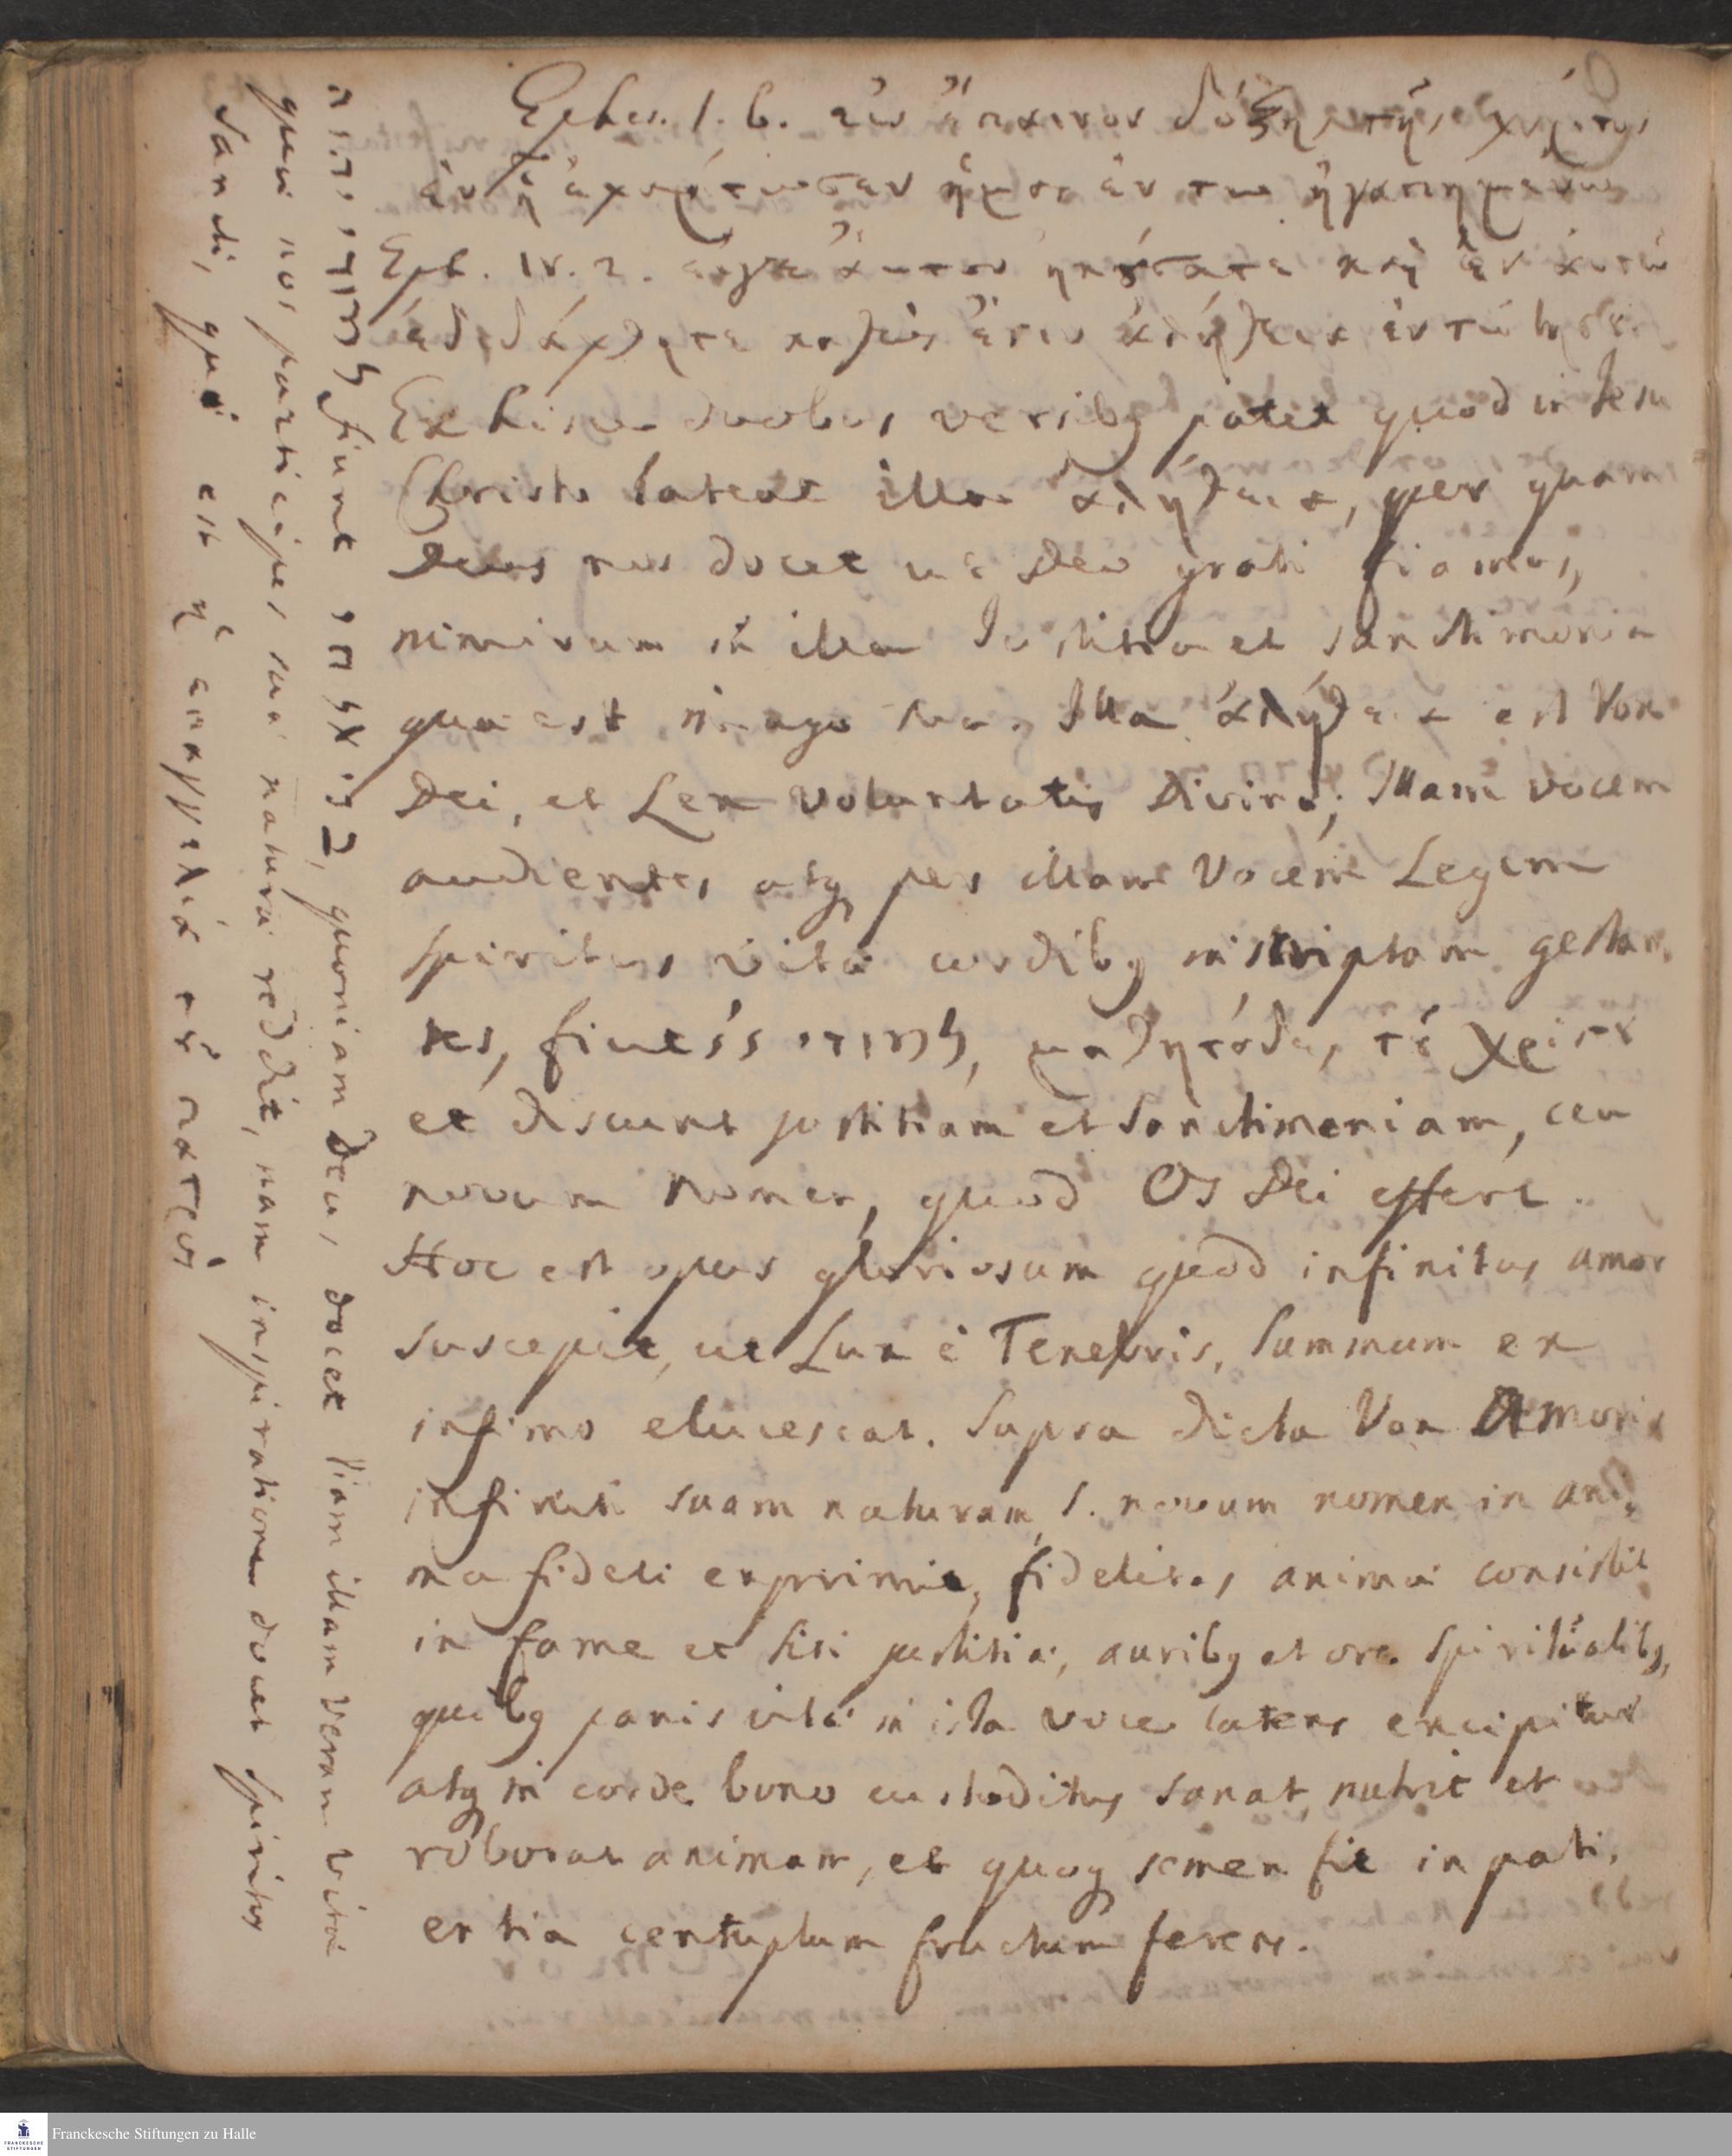 Ephes. 1. 6. εἰς ἔπαινον δόξης τῆς χάριτος
ἐν ᾗ ἐχαρίτωσεν ἡμᾶς ἐν τω ἠγαπημένω
Eph. IV. 2. εἴγε ἀυτον ηκούσατε καὶ ἐν ἀυτω
ἐδιδάχθητε καθὼς ἔστιν ἀλήθεια ἐν τω Ιησου.
Ex hisce duobus versibq patet quod in Jesu
Christo lateat illa ἀλήθεια, per quam
Deus nos docet ut Deo grati fiamus,
nimirum in illa Justitia et sanctimonia
qua est imago sua. Illa ἀλήθεια est Vox
Dei, et Lex voluntatis Divinæ; Illam vocem
audientes atq per illam Vocem Legem
spiritus vitæ cordibq inscriptam gestan
tes, fiunt למודי, μαθητάδες τȣ Χριστȣ
et discunt justitiam et Sanctimoniam, ceu
novum Nomen, quod Os Dei effert.
Hoc est opus gloriosum quod infinitus amor
suscepit, ut Lux è Tenebris, Summum ex
infimo elucescat. Supra dicta Vox Amoris
infiniti suam naturam, s. novum nomen in ani,
ma fideli exprimit, fidelitas animæ consistit
in fame et siti justitiæ, auribq et ore spiritualibq,
quibq panis vitæ in ista voce latens excipitur
atq in corde bono custoditus sanat, nutrit et
roborat animam, et quoq semen fit in pati,
entia centuplum fructum ferens.
fiunt quoniam Deus docet viam illam veram vitæ
qui nos participes suæ naturæ reddit, nam inspiratione docet Spiritus
Sancti, qui est ἡ ἐπαγγελία τȣ πατρός